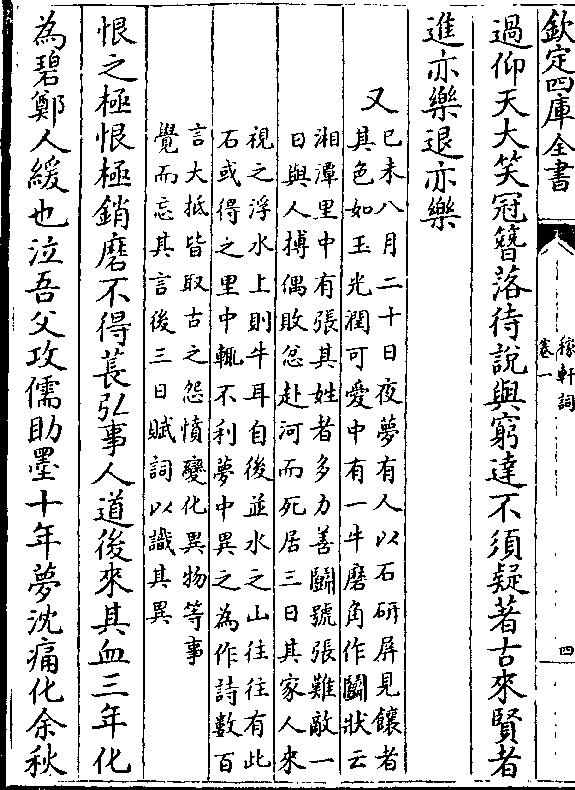 欽定四庫全書
稼軒詞
卷一
四
過仰天大笑冠簪落待說與窮達不須疑著古來賢者
進亦樂退亦樂
又
已未八月二十日夜夢有人以石研屏見饟者
其色如玉光潤可愛中有一牛磨角作鬬狀云
湘潭里中有張其姓者多力善鬬號張難敵一
日與人搏偶敗忿赴河而死居三日其家人來
視之浮水上則牛耳自後並水之山往往有此
石或得之里中輒不利夢中異之為作詩數百
言大抵皆取古之怨憤變化異物等事
覺而忘其言後三日賦詞以識其異
恨之極恨極銷磨不得萇弘事人道後來其血三年化
為碧鄭人緩也泣吾父攻儒助墨十年夢沈痛化余秋